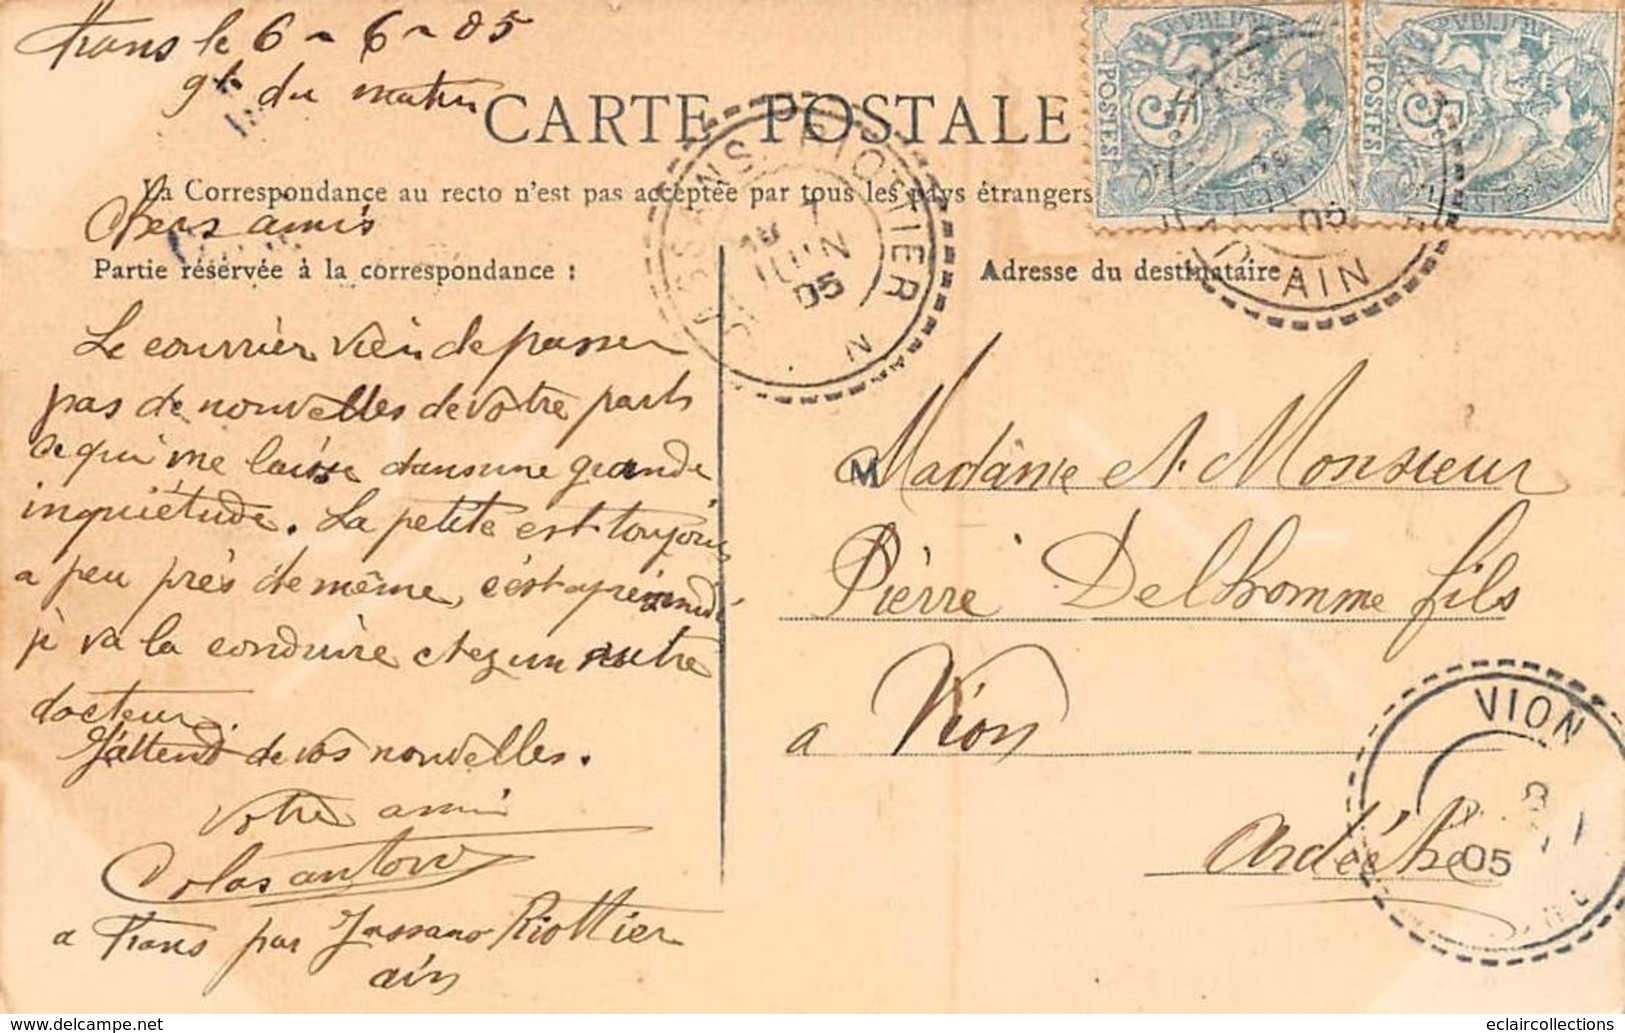 Frans le 6 - 6 - 05
9h du matin
CARTE POSTALE
La Correspondance au recto n'est pas acceptée par tous les pays étrangers
Chers amis
Partie réservée à la correspondance :
Le courrier vien de passer
pas de nouvelles de votre parts
se qui me laisse dans une grande
inquiétude. La petite est toujours
a peu près de même, c'est après midi
je va la conduire chez un autre
docteur.
J'attend de vos nouvelles.
votre ami
a Frans par Jassans Riottier
ain
Adresse du destinataire
Madame et Monsieur
Pierre Delhomme fils
a Vion
Ardèche
JASSANS-RIOTTIER
7
JUIN
05
AIN
POSTES
5
POSTES
5
M
VION
05
eclaircollections